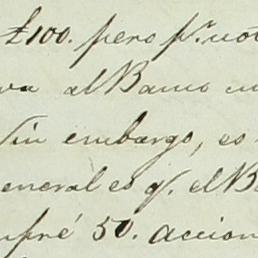 £100. pero pr. not
va al Banco en
Sin embargo, es
eneral es q. el B
mpré 50. accion